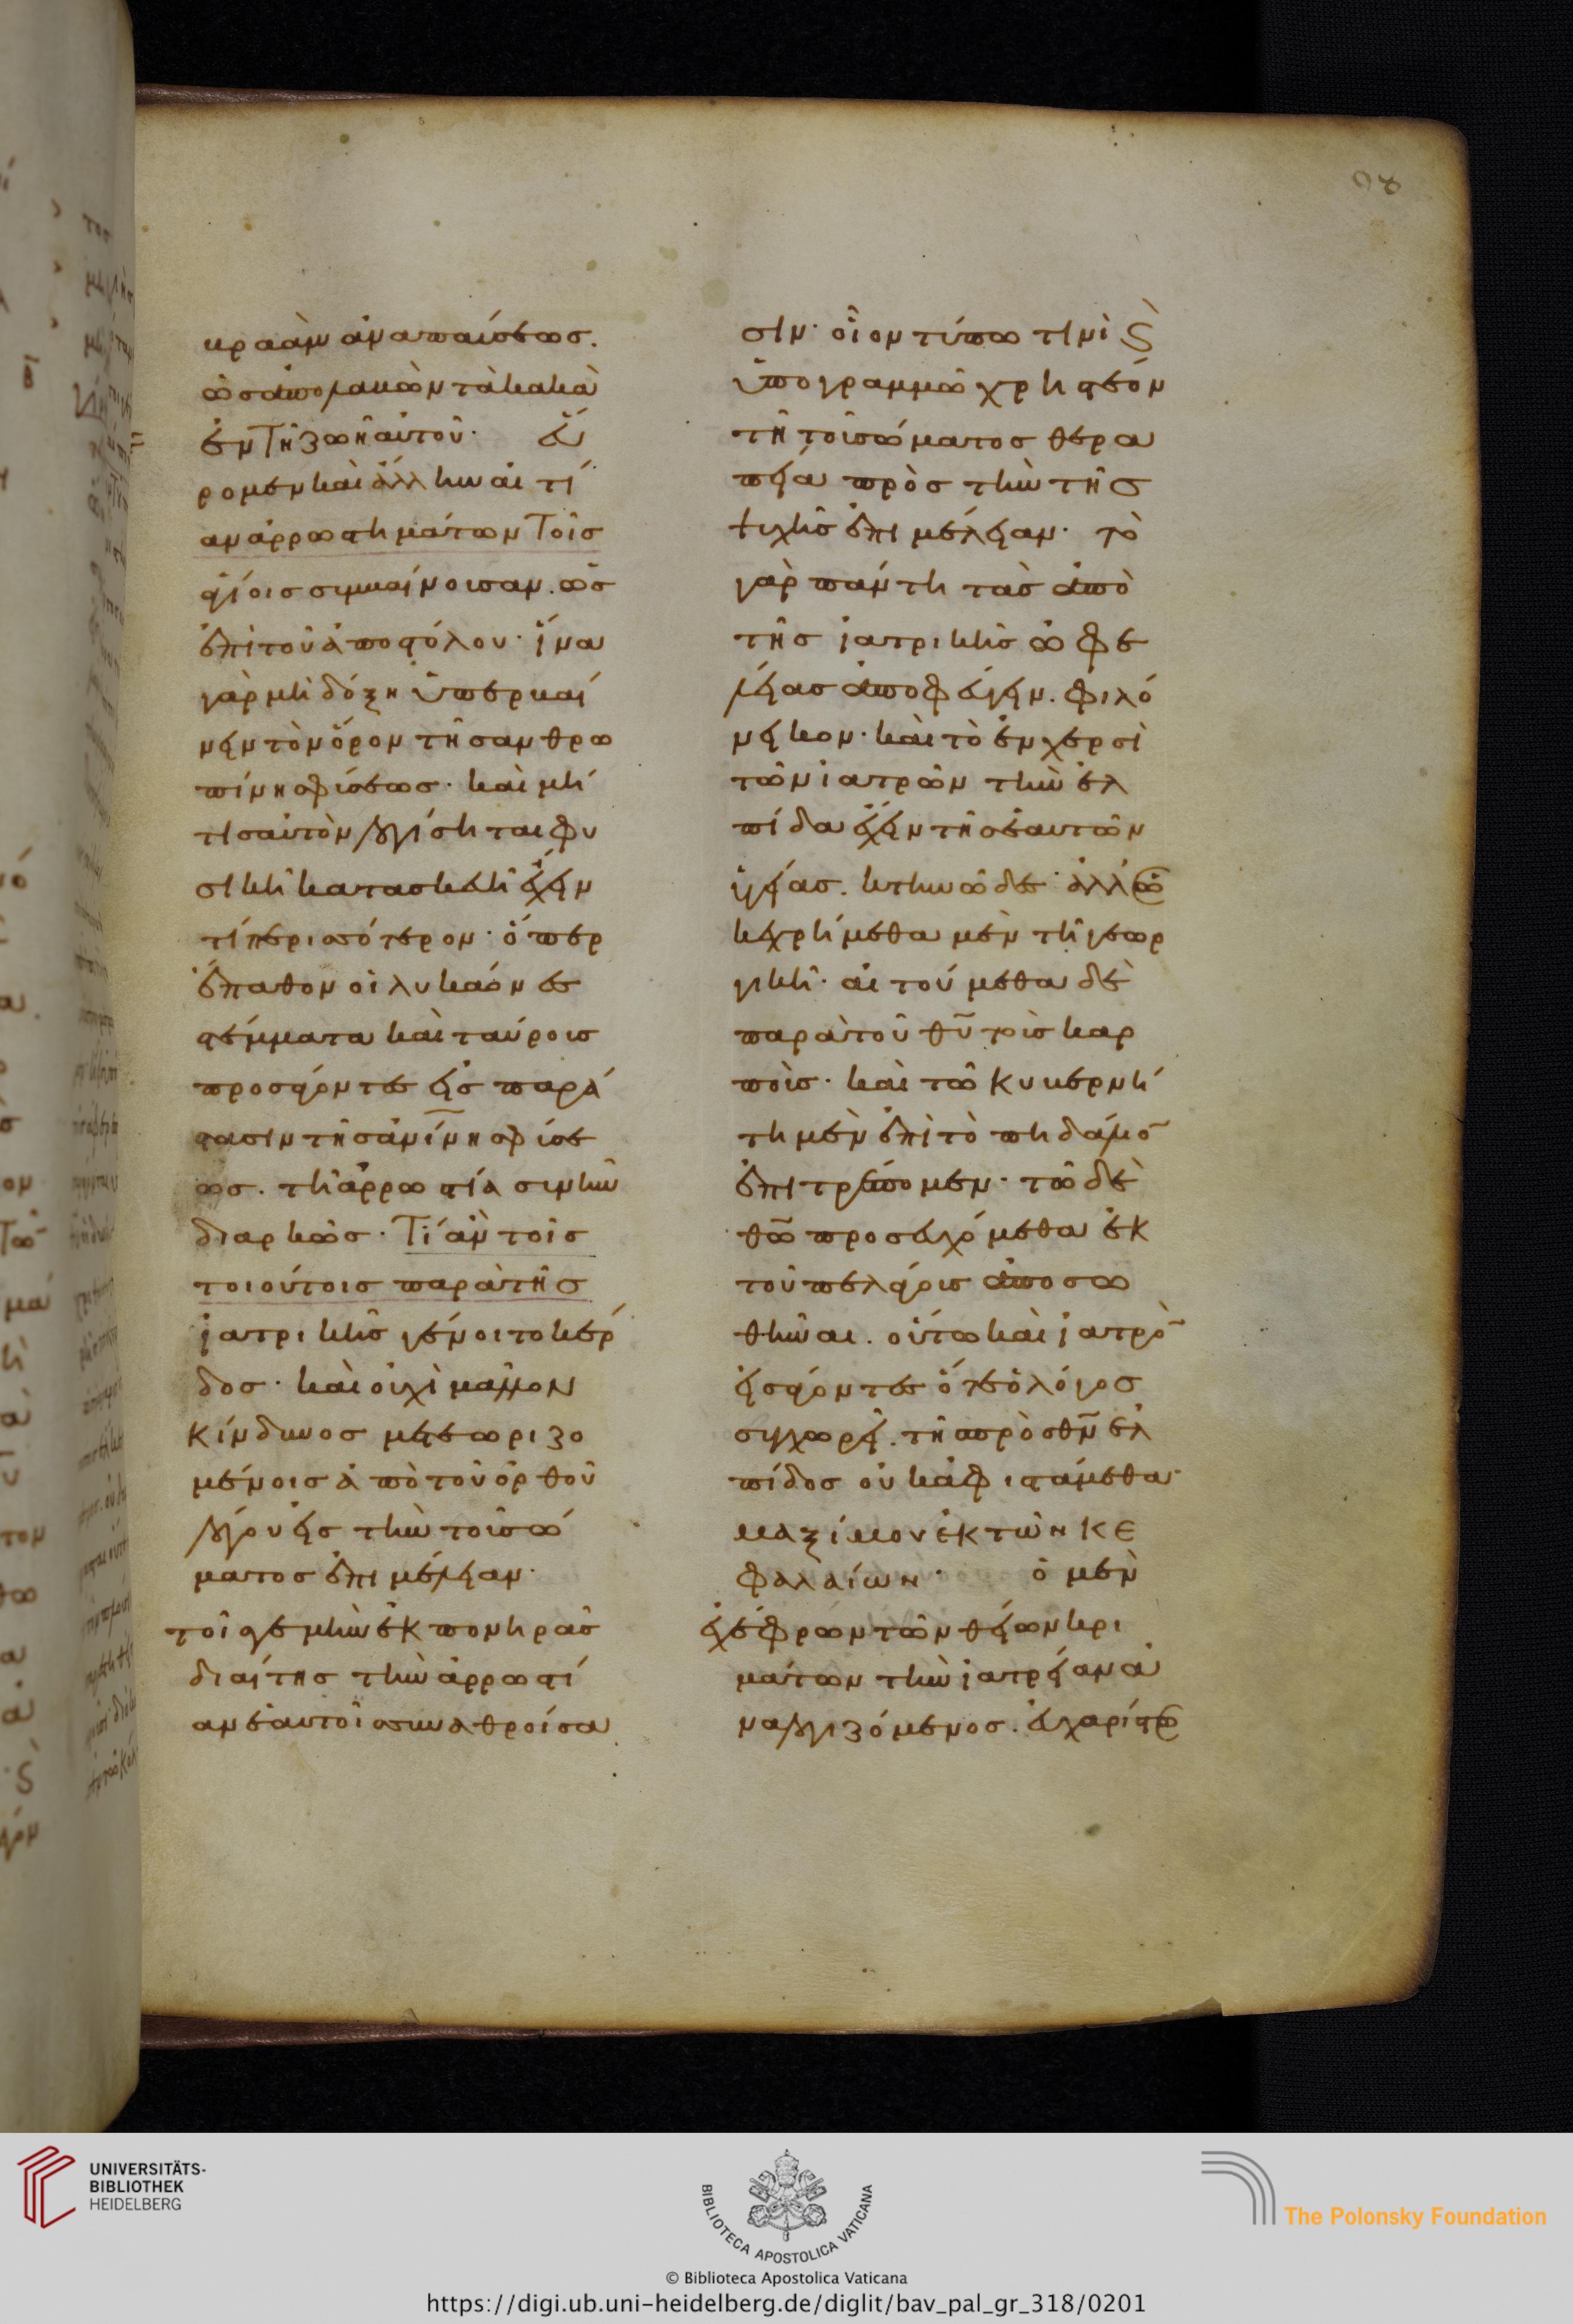 98
βραὰμ ἀναπαύσεως.
ὡς ἀπολαβὼν τὰ κακὰ
ἐν τῆ ζωῆ αὐτοῦ· εὕ
ρομεν καὶ ἄλλην αἰτί
αν ἀρρωστημάτων τοῖς
ἁγίοις συμβαίνουσαν. ὡς
ἐπὶ τοῦ ἀποστόλου· ἵνα
γὰρ μὴ δόξη ὑπερβαί
νειν τὸν ὅρον τῆς ἀνθρω
πίνης φύσεως· καὶ μή
τις αὐτὸν λογίσηται φυ
σικῆ κατασκευῆ ἔχειν
τί περισσότερον· ὅπερ
ἔπαθον οἱ λυκάονες
στέμματα καὶ ταύρους
προσάγοντες εἰς παρά
στασιν τῆς ἀνίνης φύσε
ως. τῆ ἀρρωστία συνῆν
διαρκῶς· Τί ἂν τοῖς
τοιούτοις παρὰ τῆς
ἰατρικῆς γένοιτο κέρ
δος· καὶ οὐχὶ μᾶλλον
κίνδυνος μετεωριζο
μένοις ἀπὸ τοῦ ὀρθοῦ
λόγου εἰς τὴν τοῦ σώ
ματος ἐπιμέλειαν·
τοῖς γε μὴν ἐκ πονηρᾶς
διαίτης τὴν ἀρρωστί
αν ἑαυτοῖς συναθροίσα
σιν· οἷον τύπω τινὶ ϛ
ὑπογραμμῶ χρηστέον
τῆ τοῦ σώματος θερα
πεία πρὸς τὴν τῆς
ψυχῆς ἐπιμέλειαν· τὸ
γὰρ πάντη τὰς ἀπὸ
τῆς ἰατρικῆς ὠφε
λείας ἀποφεύγειν. φιλό
νεικον· καὶ τὸ ἐν χερσὶ
τῶν ἰατρῶν τὴν ἐλ
πίδα ἔχειν τῆς ἑαυτῶν
ὑγείας. κτηνῶδες· ἀλλ' ὡς
κεχρήμεθα μὲν τῆ γεωρ
γικῆ· αἰτούμεθα δὲ
παρὰ τοῦ θυ τοὺς καρ
ποὺς· καὶ τῶ κυβερνή
τη μὲν ἐπὶ τὸ πηδάλιον
ἐπιτρέπομεν· τῶ δὲ
θω προσευχόμεθα ἐκ
τοῦ πελάγους ἀποσω
θῆναι. οὕτω καὶ ἰατρὸν
εἰσάγοντες ὅτε ὁ λόγος
συγχωρεῖ. τῆς πρὸς θν ἐλ
πίδος οὐκ ἀφιστάμεθα·
μαξίμου ἐκ τῶν κε
φαλαίων· ὁ μὲν
ἐχέφρων τῶν θείων κρι
μάτων τὴν ἰατρείαν ἀ
ναλογιζόμενος. εὐχαρίστως
UNIVERSITÄTS-
BIBLIOTHEK
HEIDELBERG
BIBLIOTECA APOSTOLICA VATICANA
The Polonsky Foundation
© Biblioteca Apostolica Vaticana
https://digi.ub.uni-heidelberg.de/diglit/bav_pal_gr_318/0201